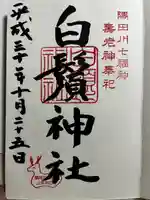 隅田川七福神
寿老神奉祀
白鬚神社
平成三十一年十月二十五日